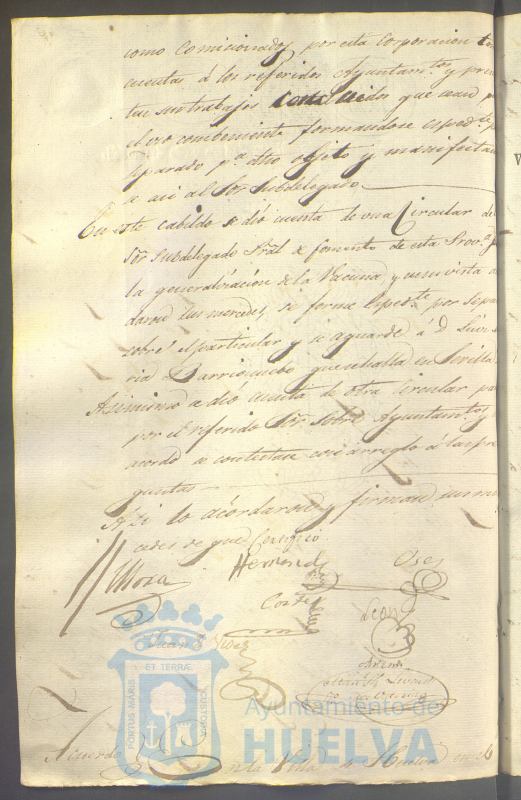 como Comicionados por esta Corporacion
cuentas á los referidos Ayuntam.tos y
tar sus trabajos que sean
el eso combeniente formandose esped.te
separado p.a dho objeto y manifestan
se asi al Sor Subdelegado.
En este cabildo se dió cuenta de una Circular del
Sor Subdelegado Pral de fomento de esta Prov.a
la generalizacion de la Vacuna, y en su vista
daron sus mercedes, se forme esped.te por sepa
sobre el particular y se aguarde á D.
ria Barrionuebo que se halla en Sevilla
Asimismo se dió cuenta de otra Circular
por el referido Sor sobre Ayuntamtos y
acordó se contestase con arreglo á las pre
guntas
Asi lo acordaron y firman sus mer
cedes de que Certifico
Mora
Hernand
Oses
Cortes
Leon
Juan
ET TERRÆ
PORTUS MARIS
CUSTODIA
Ayuntamiento de
HUELVA
Acuerdo
En la Villa de Huelva en